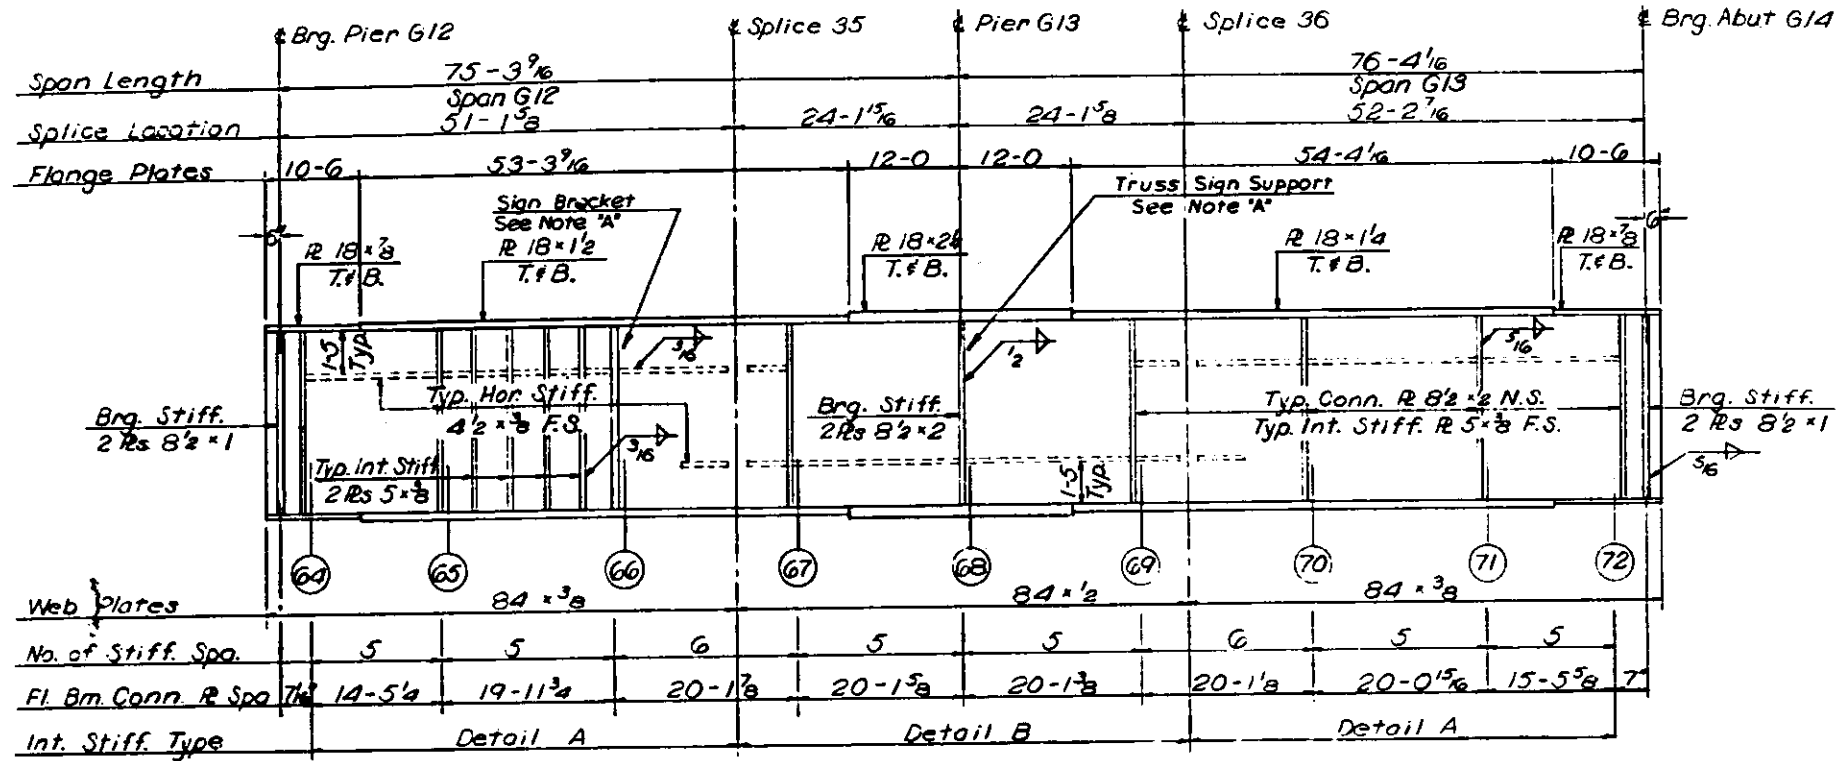 ℄ Brg. Pier G12 ℄ Splice 35 ℄ Pier G13 ℄ Splice 36 ℄ Brg. Abut G14
Span Length 75-3 9/16 76-4 1/16
Span G12 Span G13
Splice Location 51-1 5/8 24-1 15/16 24-1 5/8 52-2 7/16
Flange Plates 10-6 53-3 9/16 12-0 12-0 54-4 1/16 10-6
Sign Bracket
See Note "A"
Truss Sign Support
See Note "A"
6" 6"
℞ 18 × 7/8
T. & B.
℞ 18 × 1 1/2
T. & B.
℞ 18×2
T. & B.
℞ 18 × 1 1/4
T. & B.
℞ 18 × 7/8
T. & B.
1-5
Typ.
3/16 1/2 5/16
Typ. Hor. Stiff.
4 1/2 × 3/8 F.S.
Brg. Stiff.
2 ℞s 8 1/2 × 1
Brg. Stiff.
2 ℞s 8 1/2 × 2
Typ. Conn. ℞ 8 1/2 × 1/2 N.S.
Typ. Int. Stiff. ℞ 5 × 3/8 F.S.
Brg. Stiff.
2 ℞s 8 1/2 × 1
3/16 5/16
Typ. Int. Stiff.
2 ℞s 5 × 3/8
1-5
Typ.
64 65 66 67 68 69 70 71 72
Web Plates 84 × 3/8 84 × 1/2 84 × 3/8
No. of Stiff. Spa. 5 5 6 5 5 6 5 5
Fl. Bm. Conn. ℞ Spa 14-5 1/4 19-11 3/4 20-1 7/8 20-1 5/8 20-1 3/8 20-1 1/8 20-0 15/16 15-5 5/8 7"
Int. Stiff. Type Detail A Detail B Detail A